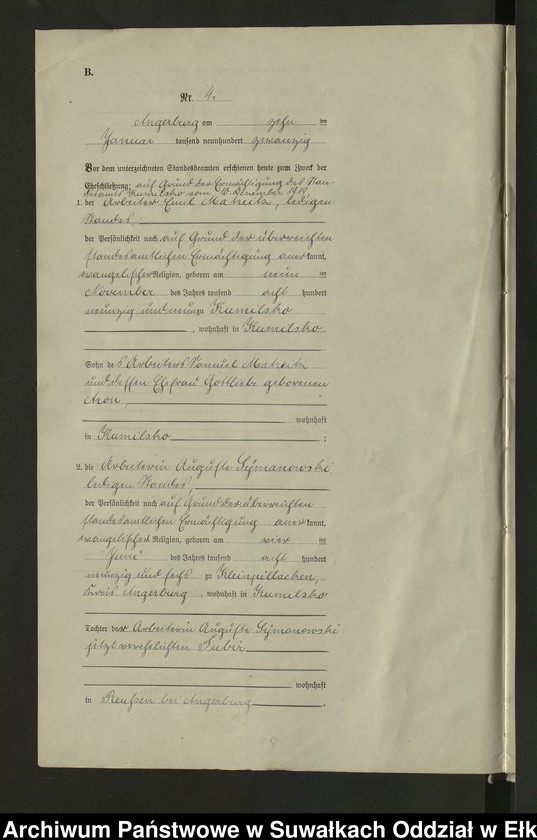 B.
Nr. 4.
Angerburg am zehn ten
Januar tausend neunhundert zwanzig
Vor dem unterzeichneten Standesbeamten erschienen heute zum Zweck der
Eheschließung: auf Grund der Ermächtigung des Stan-
desamts Kumilsko vom 10. Dezember 1919
1. der Arbeiter Emil Matreitz, ledigen
Standes,
der Persönlichkeit nach auf Grund der überreichten
standesamtlichen Ermächtigung aner kannt,
evangelischer Religion, geboren am neun ten
November des Jahres tausend acht hundert
neunzig und neun zu Kumilsko
, wohnhaft in Kumilsko
Sohn des Arbeiters Samuel Matreitz
und dessen Ehefrau Gottliebe geborenen
Aron,
wohnhaft
in Kumilsko ;
2. die Arbeiterin Auguste Symanowski
ledigen Standes,
der Persönlichkeit nach auf Grund der überreichten
standesamtlichen Ermächtigung aner kannt,
evangelischer Religion, geboren am vier ten
Juni des Jahres tausend acht hundert
neunzig und sechs zu Kleinpillacken,
Kreis Angerburg, wohnhaft in Kumilsko
Tochter der Arbeiterin Auguste Symanowski
jetzt verehelichten
wohnhaft
in Reussen bei Angerburg .
Archiwum Państwowe w Suwałkach Oddział w Ełk